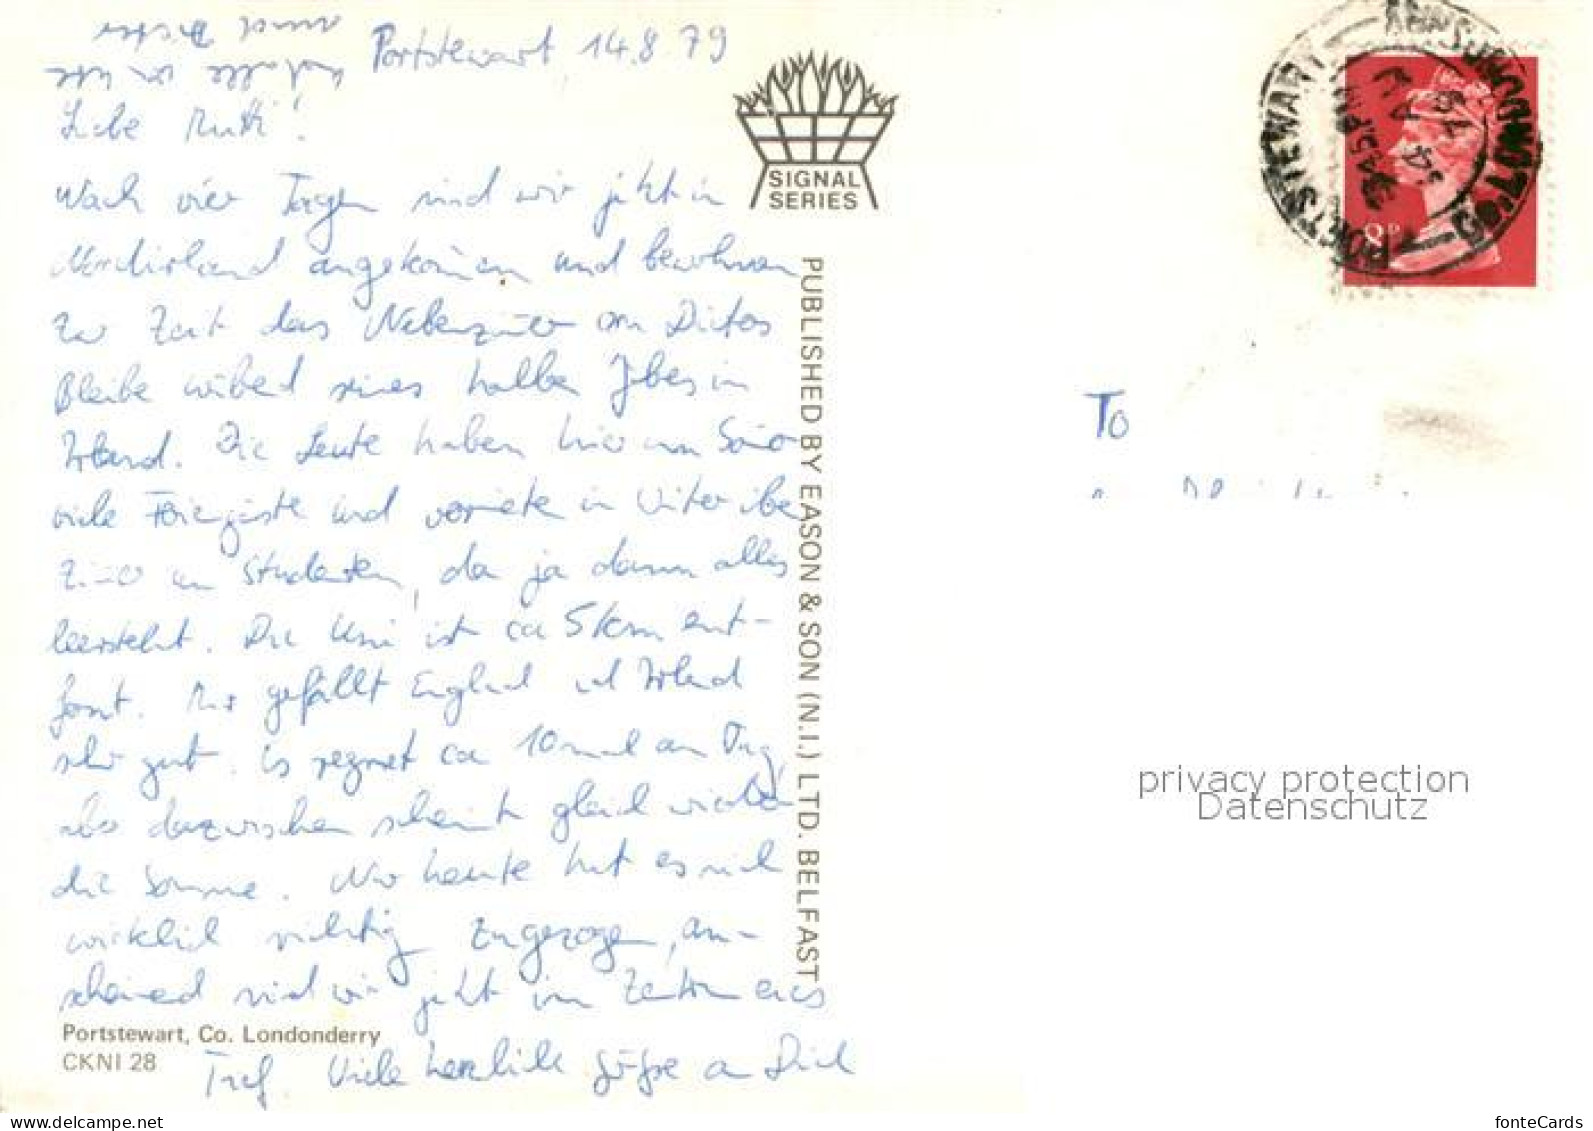 Portstewart, 14.8.79
Liebe Mutti!
Nach vier Tagen sind wir jetzt in
Nordirland angekommen und bewohnen
zur Zeit das Nebenzimmer von
Bleibe während seines halben Jahres in
Irland. Die Leute haben hier im Sommer
viele Feriengäste und vermieten im Winter ihre
Zimmer an Studenten, da ja dann alles
leersteht. Die Uni ist ca 5 km ent-
fernt. Mir gefällt England und Irland
sehr gut. Es regnet ca 10 mal am Tag,
aber dazwischen scheint gleich wieder
die Sonne. Nur heute hat es sich
wirklich richtig zugezogen, an-
scheinend sind wir jetzt im Zentrum eines
Tief. Viele herzliche Grüße an Dich
und alle von
SIGNAL
SERIES
PUBLISHED BY EASON & SON (N.I.) LTD. BELFAST
Portstewart, Co. Londonderry
CKNI 28
PORTSTEWART
CO. LONDONDERRY
8P
To
privacy protection
Datenschutz
fonteCards